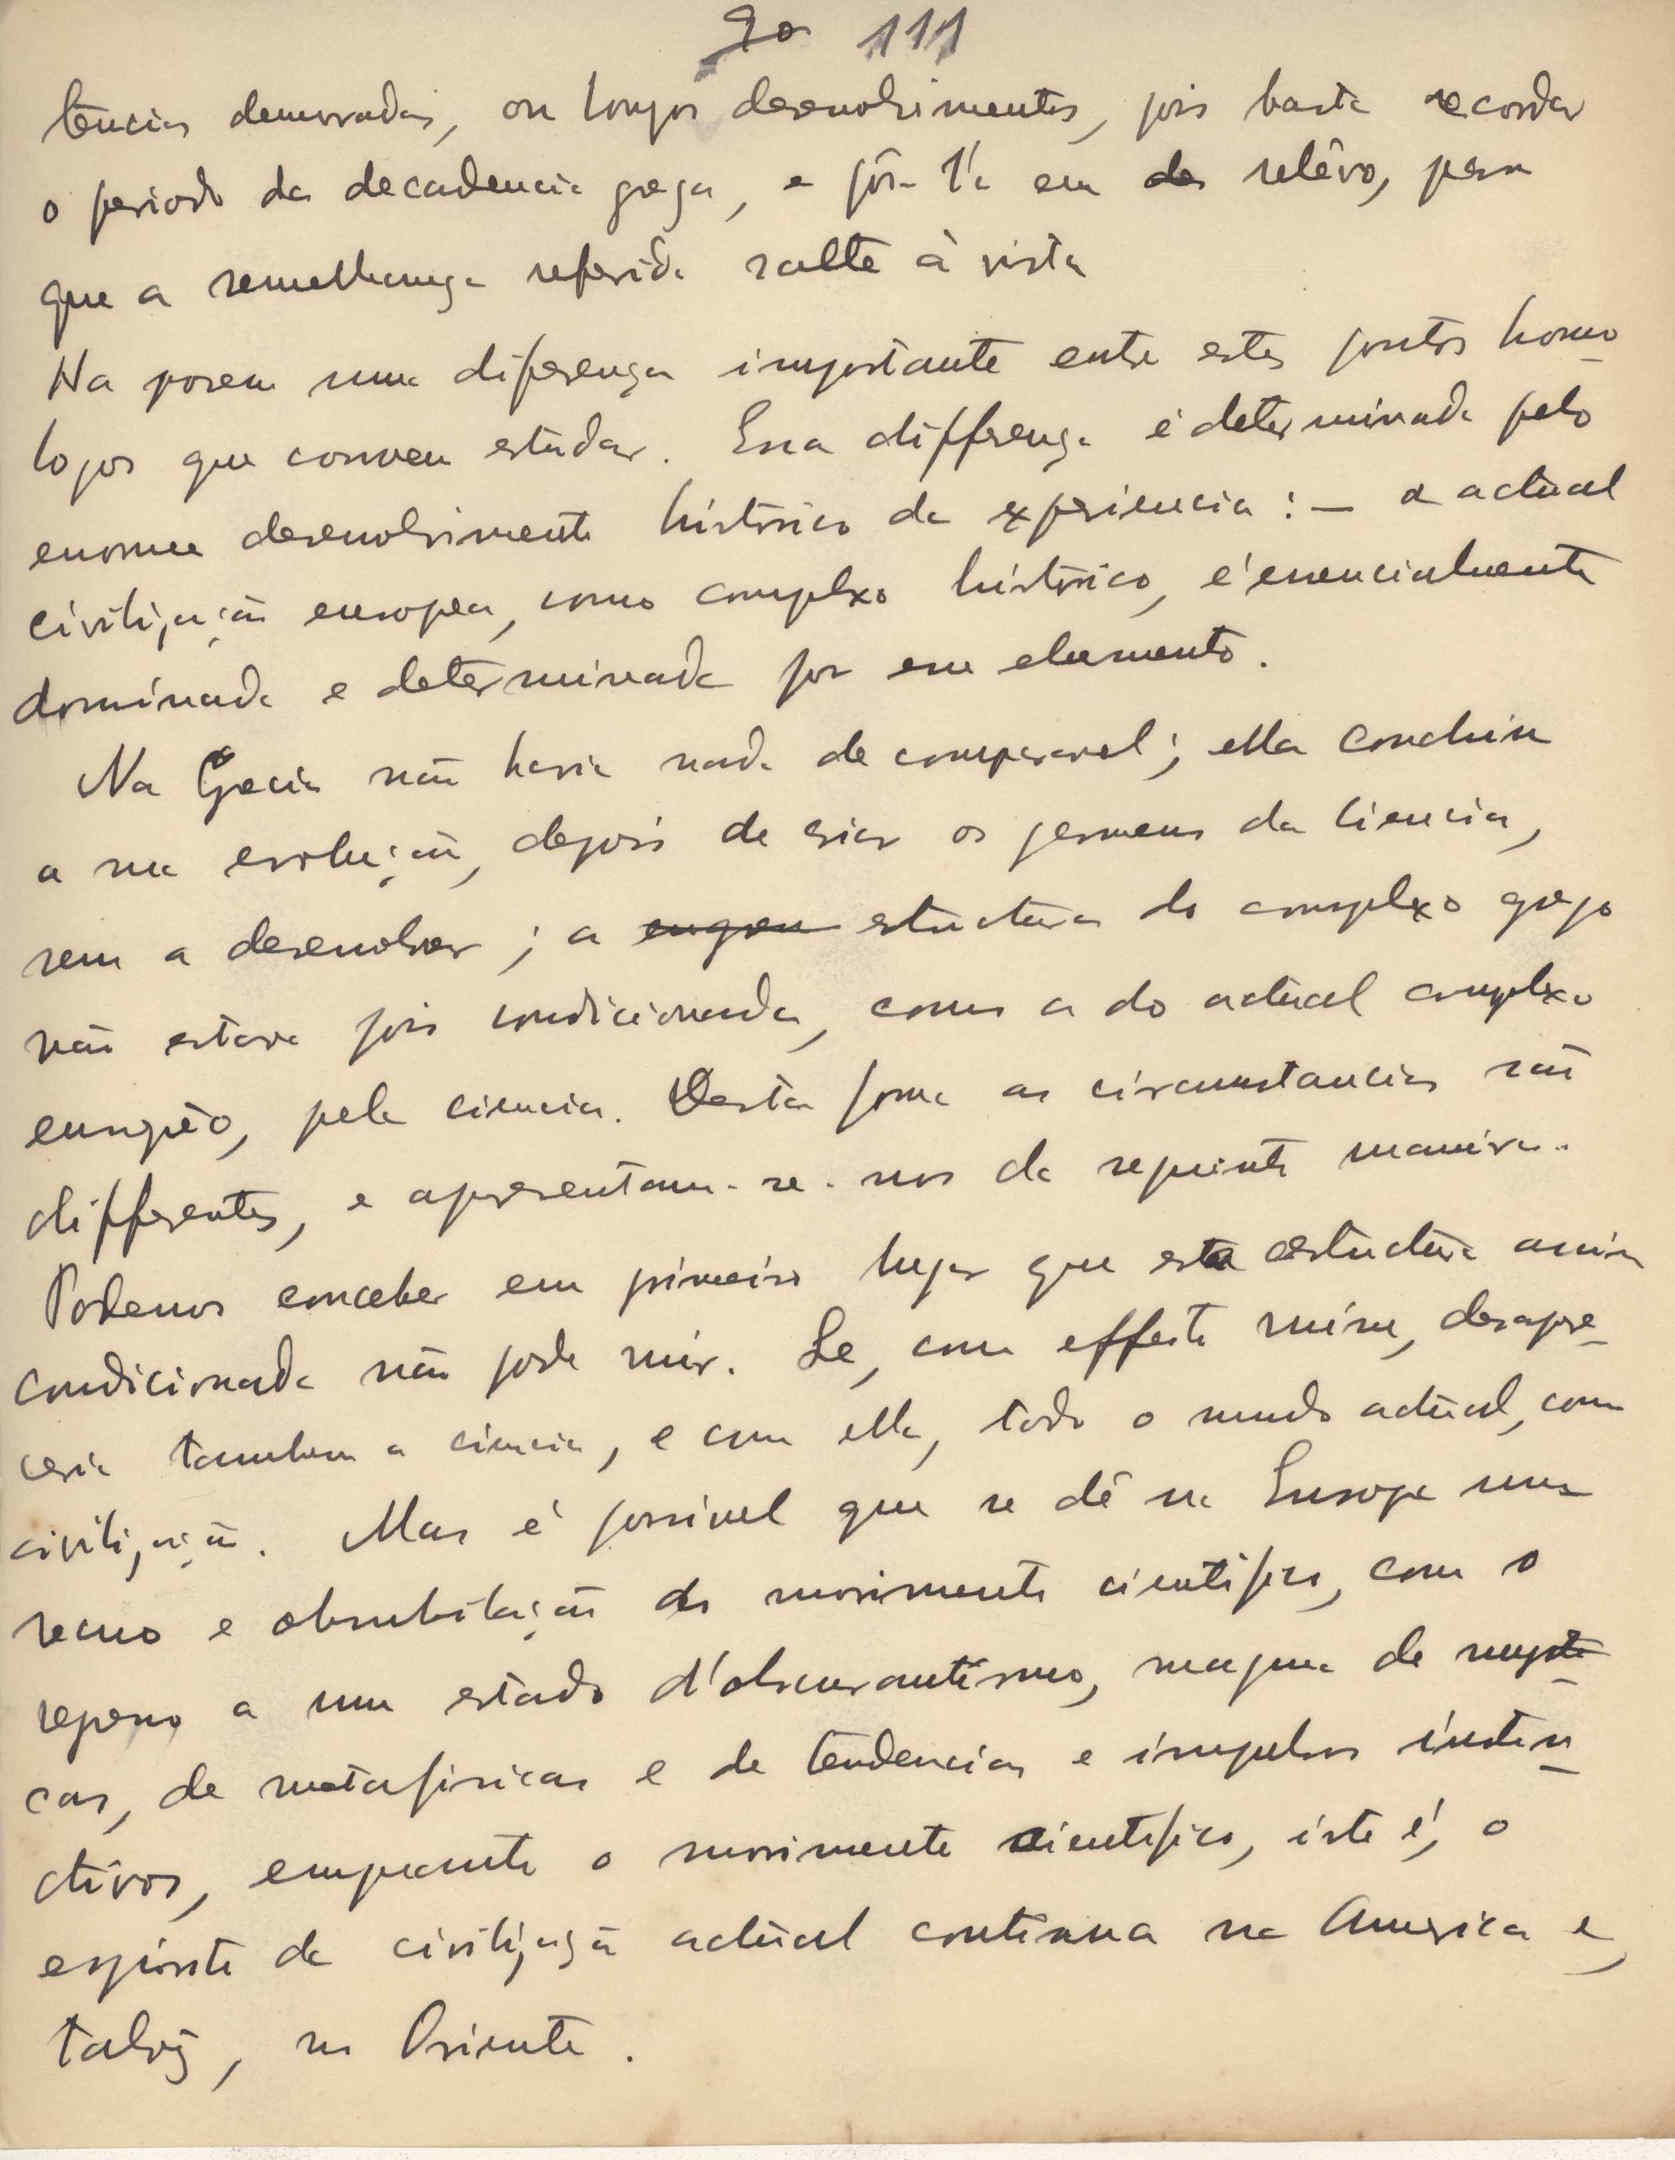 90 111
tencias demoradas, ou longos desenvolvimentos, pois basta recordar
o periodo da decadencia grega, e pôr-l'a em relêvo, para
que a semelhança referida salte à vista
Ha porem uma diferença importante entre estes pontos homo-
logos que convem estudar. Essa differença é determinada pelo
enorme desenvolvimento histórico da experiencia: — a actual
civilização europea, como complexo histórico, é essencialmente
dominada e determinada por esse elemento.
Na Grecia não havia nada de comparavel; ella concluiu
a sua evolução, depois de criar os germens da ciencia,
sem a desenvolver; a estructura do complexo grego
não estava pois condicionada, como a do actual complexo
europêo, pela ciencia. Desta forma as circumstancias são
differentes, e apresentam-se-nos da seguinte maneira..
Podemos conceber em primeiro lugar que esta estructura assim
condicionada não pode ruir. Se, com effeito ruisse, desapare-
ceria tambem a ciencia, e com ella, todo o mundo actual, como
civilização. Mas é possivel que se dê na Europa uma
recuo e obnubilação do movimento cientifico, com o
regresso a um estado d'obscurantismo, magma de mysti-
cas, de metafisicas e de tendencias e impulsos instin-
ctivos, emquanto o movimento cientifico, isto é, o
espirito da civilização actual continua na America e,
talvez, no Oriente.